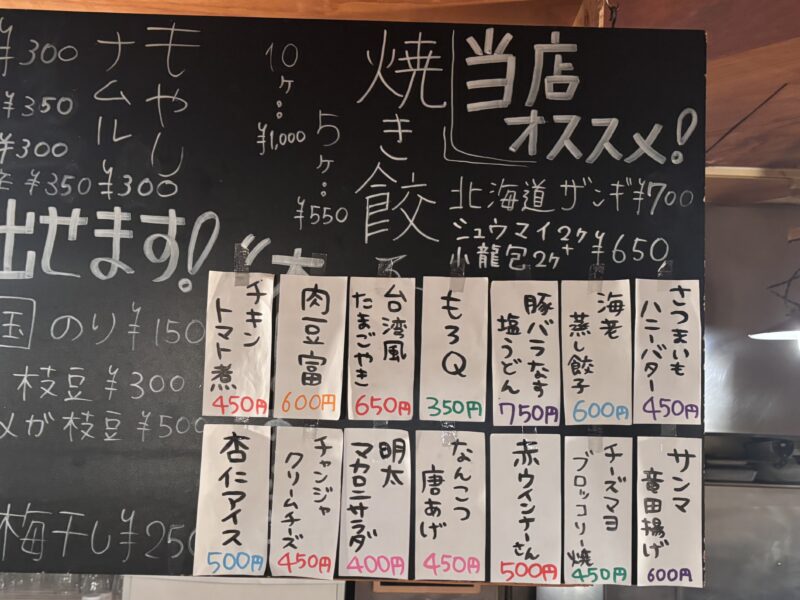 当店
オススメ!
北海道ザンギ¥700
シュウマイ2ヶ+
小龍包2ヶ ¥650
焼き餃子
5ヶ:¥550
10ヶ:¥1,000
もやし
ナムル
¥300
¥300
¥350
¥300
¥350
出せます!
国のり¥150
枝豆¥300
メガ枝豆¥500
梅干し¥250
さつまいも
ハニーバター
450円
海老
蒸し餃子
600円
豚バラなす
塩うどん
750円
もろQ
350円
台湾風
たまごやき
650円
肉豆富
600円
チキン
トマト煮
450円
サンマ
竜田揚げ
600円
チーズマヨ
ブロッコリー焼
450円
赤ウインナーさん
500円
なんこつ
唐あげ
450円
明太
マカロニサラダ
400円
チャンジャ
クリームチーズ
450円
杏仁アイス
500円